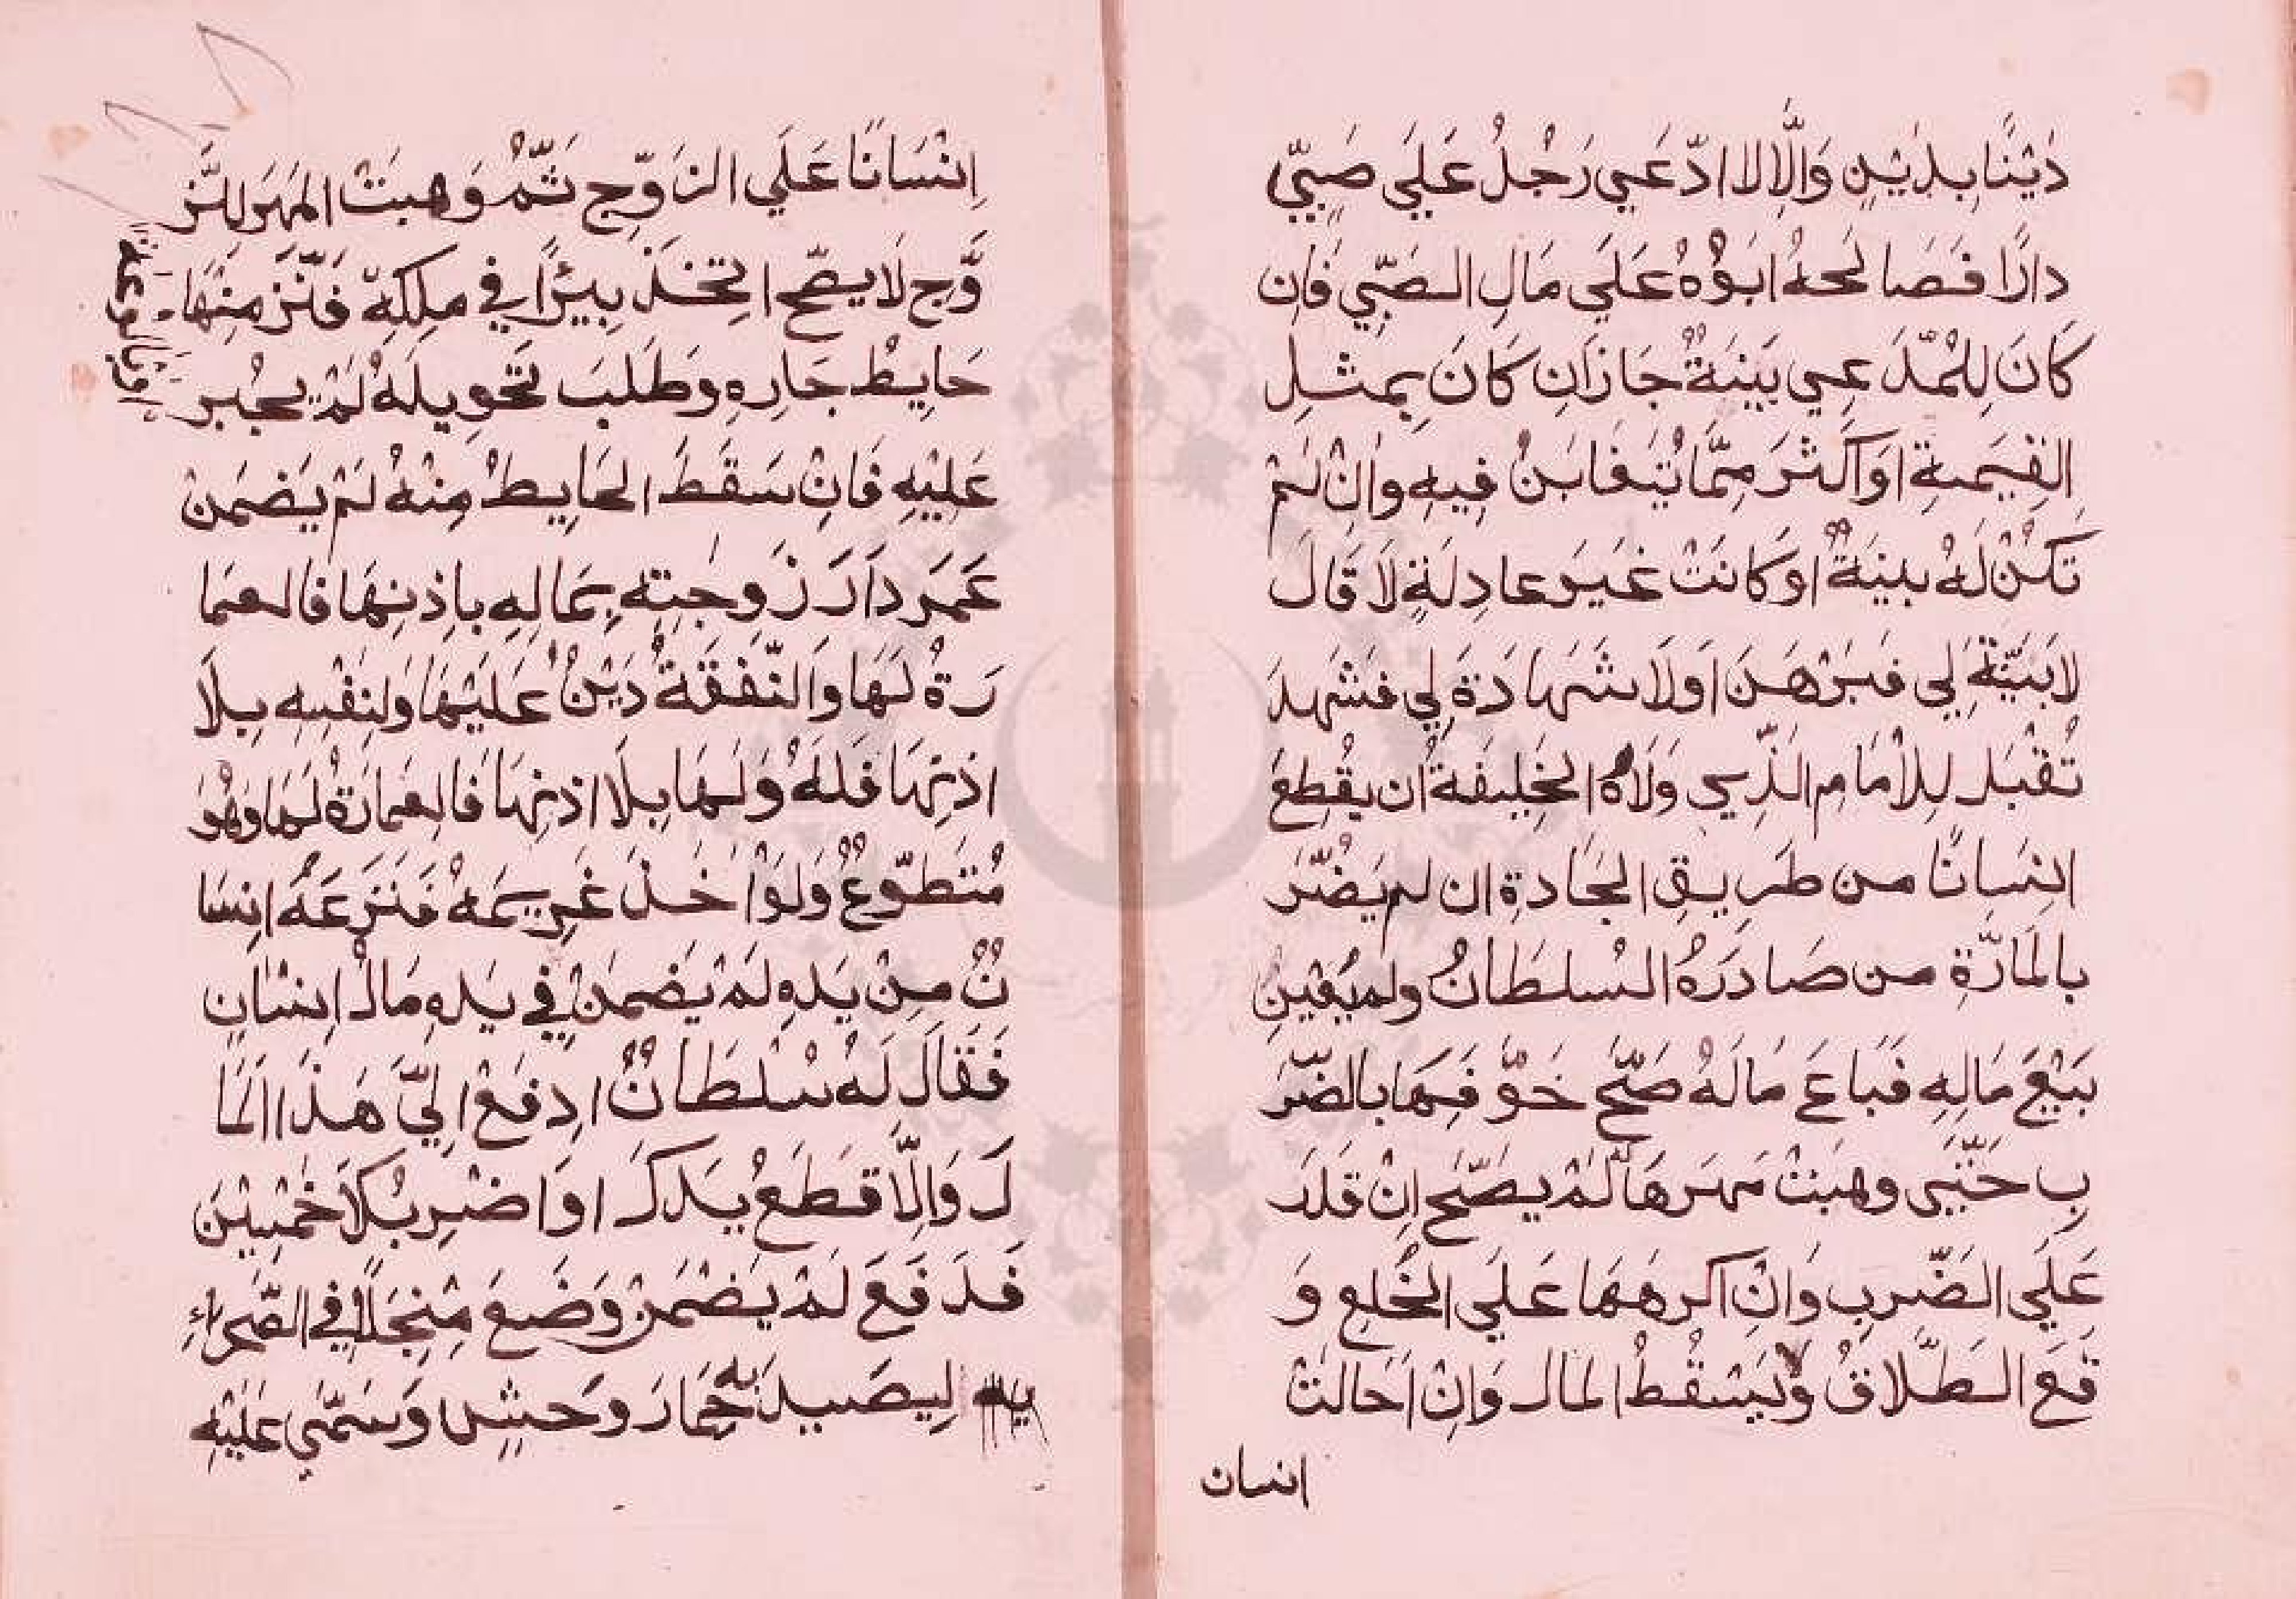 دَيْنًا بِدَيْنٍ وَاِلَّا لا ادّعَي رَجُلُ عَلَي صَبِيّ
دارًا فَصَالَحَهُ ابَوُهُ عَلَي مَالِ الصَّبِّي فَان
كَانَ لِلْمُدَّعِي بَيِنَةٌ جَازَانِ كَانَ بِمثلِ
القِيَمةِ اوَاَكْثَرَ مِمَّا يُتَغَابَنُ فِيهِ وانْ لمْ
تَكُنْ لَهُ بينَةٌ اوَ كانَتْ غَيَر عادِلَةٍ لَا قَالَ
لا بَيّنَةَ لِي فَبَرْهَنَ اَو لَا شَهادَةَ لِي فشَهِدَ
تُقْبَل لِلْأمَامِ الذّي وَلَاهُ الخَلِيفَةُ ان يقْطِعَ
اِنسانًا من طَرِيقِ الجَادةِ ان لم يَضُّرَّ
بالمَارّةِ من صَادَرَهُ السُلطَانُ ولم يُعَيْنِ
بَيْعَ مَالِهِ فَبَاعَ مَالَهُ صَحَّ خَوَّفَهَا بالضّرَ
بِ حَتَّى وهبَتْ مَهَرهَا لَمْ يصَحَّ اِنْ قَدَرَ
عَلَي الضَّربِ وَانْ اكرهَهَا عَلَي الخُلع وَ
قَعَ الطَّلاقُ وَلا يَسْقُطُ المال وَاِنْ اَحَالتْ
انسان
اِنْسَانًا عَلَي الزَوّجِ ثمَّ وَهبَتْ المَهَر للزَّ
وَّج لَا يصّح اتَّخَذَ بِيْرًا في مِلكِهِ فَنَزَّ مِنْهَا
حَايِطُ جَارِهِ وَطَلَبَ تَحوِيلَهُ لَمْ يُجْبر
عَلَيْهِ فَانِ سَقَطَ الحَايِطُ مِنْهُ لَمْ يَضمَنْ
عَمَر دَارَ زَوجَتِهِ بِمَالِهِ باِذنِهَا فالعمَا
رَةُ لَهَا وَالنّفَقَةُ دَيْنٌ عَلَيْهَا وَلِنَفْسِهِ بِلَا
اذنِهَا فَلَهُ وَلَهَا بِلَا اذنِهَا فَالعِمَارَةُ لهَا وَهُوَ
مُتَطَوّعٌ وَلَوْ اَخَذَ غَرِيمَهُ فَنَزَعَهُ انِسَا
نٌ مِنْ يَدِهِ لَمْ يَضمَنْ في يَدِهِ مَال اِنسَانٍ
فَقَالَ لَهُ سُلطَانٌ ادِفَعْ اِلَيَّ هَذا المَا
لَ وَاِلّا قطَعُ يَدَكَ اوَ اضرِبُكَ خَمْسِيْنَ
فَدَفَعَ لَمْ يَضْمَنْ وَضَعَ مِنجَلًا في الصّحراءِ
لِيَصيدَ به حِمَارَ وَحشٍ وَسَمّي عَلَيْهِ